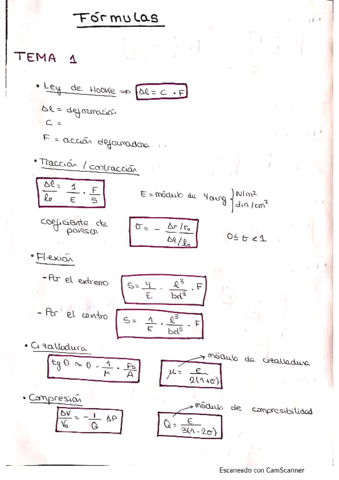 Fórmulas
TEMA 1
• Ley de Hooke => Δl = C · F
Δl = deformación
C =
F = acción deformadora
• Tracción / contracción
Δl/l₀ = 1/E · F/S
E = módulo de Young } N/m² din/cm²
coeficiente de poisson
σ = - Δr/r₀ / Δl/l₀
0 ≤ σ < 1
• Flexión
- Por el extremo
S = 4/E · l³/bd³ · F
- Por el centro
S = 1/E · l³/bd³ · F
• Cizalladura
módulo de cizalladura
tg θ ≈ θ = 1/μ · Fs/A
μ = E/2(1+σ)
• Compresión
módulo de compresibilidad
ΔV/V₀ = - 1/Q ΔP
Q = E/3(1-2σ)
Escaneado con CamScanner